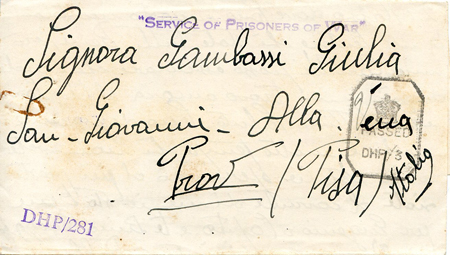 "SERVICE OF PRISONERS OF WAR"
Signora Gambassi Giulia
San-Giovanni-Alla Vena
PASSED
DHP/3
Prov (Pisa) Italia
DHP/281